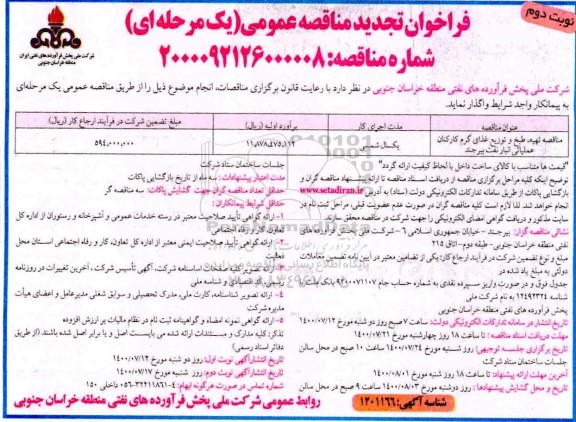 نوبت دوم
فراخوان تجدید مناقصه عمومی (یک مرحله ای)
شماره مناقصه: ۲۰۰۰۰۹۲۱۲۶۰۰۰۰۰۸
شرکت ملی پخش فرآورده های نفتی ایران
منطقه خراسان جنوبی
شرکت ملی پخش فرآورده های نفتی منطقه خراسان جنوبی در نظر دارد با رعایت قانون برگزاری مناقصات، انجام موضوع ذیل را از طریق مناقصه عمومی یک مرحله‌ای
به پیمانکار واجد شرایط واگذار نماید.
عنوان مناقصه
مدت اجرای کار
برآورد اولیه (ریال)
مبلغ تضمین شرکت در فرآیند ارجاع کار (ریال)
مناقصه تهیه، طبخ و توزیع غذای گرم کارکنان
عملیاتی انبار نفت بیرجند
یکسال شمسی
۱۱،۸۷۸،۴۷۵،۱۱۳
۵۹۴،۰۰۰،۰۰۰
"قیمت ها متناسب با کالای ساخت داخل با لحاظ کیفیت ارائه گردد"
توضیح اینکه کلیه مراحل برگزاری مناقصه از دریافت اسناد مناقصه تا ارائه پیشنهاد مناقصه گران و
بازگشایی پاکات از طریق سامانه تدارکات الکترونیکی دولت (ستاد) به آدرس www.setadiran.ir
انجام خواهد شد. لذا لازم است کلیه مناقصه گران در صورت عدم عضویت قبلی، مراحل ثبت نام در
سایت مذکور و دریافت گواهی امضای الکترونیکی را جهت شرکت در مناقصه محقق سازند.
نشانی مناقصه گزار: بیرجند - خیابان جمهوری اسلامی ۶ - شرکت ملی پخش فرآورده های
نفتی منطقه خراسان جنوبی - طبقه دوم - اتاق ۲۱۵
مبلغ و نوع تضمین شرکت در فرآیند ارجاع کار: یکی از تضامین معتبر در آیین نامه تضمین معاملات
دولتی به مبلغ یاد شده در
جدول فوق و در صورت واریز سپرده نقدی به شماره حساب جام
شناسه ۱۲۴۹۳۳۴ به نام شرکت ملی
پخش فرآورده های نفتی منطقه خراسان جنوبی
تاریخ انتشار در سامانه تدارکات الکترونیکی دولت: ساعت ۷ صبح روز دو شنبه مورخ ۱۴۰۰/۰۷/۱۲
مهلت دریافت اسناد مناقصه: تا ساعت ۱۸ روز چهارشنبه مورخ ۱۴۰۰/۰۷/۲۱
تاریخ برگزاری جلسه توجیهی: روز شنبه مورخ ۱۴۰۰/۰۷/۲۴ ساعت ۱۰ صبح در محل سالن
جلسات ساختمان ستاد شرکت
آخرین مهلت ارائه پیشنهاد: تا ساعت ۱۸ روز شنبه مورخ ۱۴۰۰/۰۸/۰۱
تاریخ و محل گشایش پیشنهادها: روز دوشنبه مورخ ۱۴۰۰/۰۸/۰۳ ساعت ۹ صبح در محل سالن
جلسات ساختمان ستاد شرکت
مدت اعتبار پیشنهادات: سه ماه از تاریخ بازگشایی پاکات
حداقل تعداد مناقصه گران جهت گشایش پاکات: سه مناقصه گر
حداقل شرایط پیمانکاران:
۱- ارائه گواهی تأیید صلاحیت معتبر در رسته خدمات عمومی و آشپزخانه و رستوران از اداره کل
تعاون، کار و رفاه اجتماعی
۲- ارائه گواهی تأیید صلاحیت ایمنی معتبر از اداره کل تعاون، کار و رفاه اجتماعی استان محل
فعالیت
۳- ارائه تصویر کلیه صفحات اساسنامه شرکت، آگهی تأسیس شرکت، آخرین تغییرات در روزنامه
رسمی، کد اقتصادی و شناسه ملی
۴- ارائه تصویر شناسنامه، کارت ملی، مدرک تحصیلی و سوابق شغلی مدیرعامل و اعضای هیأت
مدیره شرکت
۵- ارائه گواهی نمونه امضاء و گواهینامه ثبت نام در نظام مالیات بر ارزش افزوده
تذکر: کلیه مدارک و مستندات ارائه شده می بایست اصل و یا برابر اصل شده باشند (از طریق
دفاتر اسناد رسمی)
تاریخ انتشار آگهی نوبت اول: روز دو شنبه مورخ ۱۴۰۰/۰۷/۱۲
تاریخ انتشار آگهی نوبت دوم: روز شنبه مورخ ۱۴۰۰/۰۷/۱۷
شماره تماس در صورت هرگونه ابهام: ۴-۰۵۶-۳۲۲۱۱۸۶۱ داخلی ۱۵۰
شناسه آگهی: ۱۲۰۱۱۶۶
روابط عمومی شرکت ملی پخش فرآورده های نفتی منطقه خراسان جنوبی